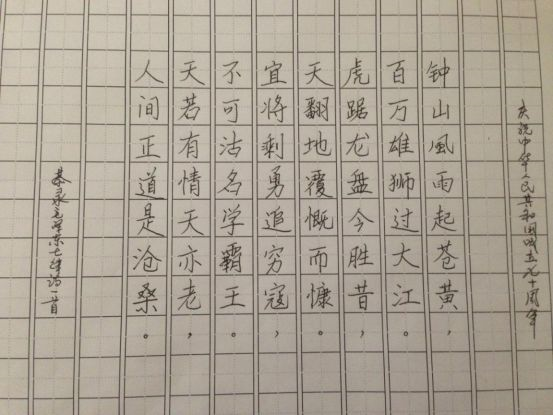 庆祝中华人民共和国成立十周年
钟山風雨起苍黄，
百万雄狮过大江。
虎踞龙盘今胜昔，
天翻地覆慨而慷。
宜将剩勇追穷寇，
不可沽名学霸王。
天若有情天亦老，
人间正道是沧桑。
恭录毛泽东七律诗一首